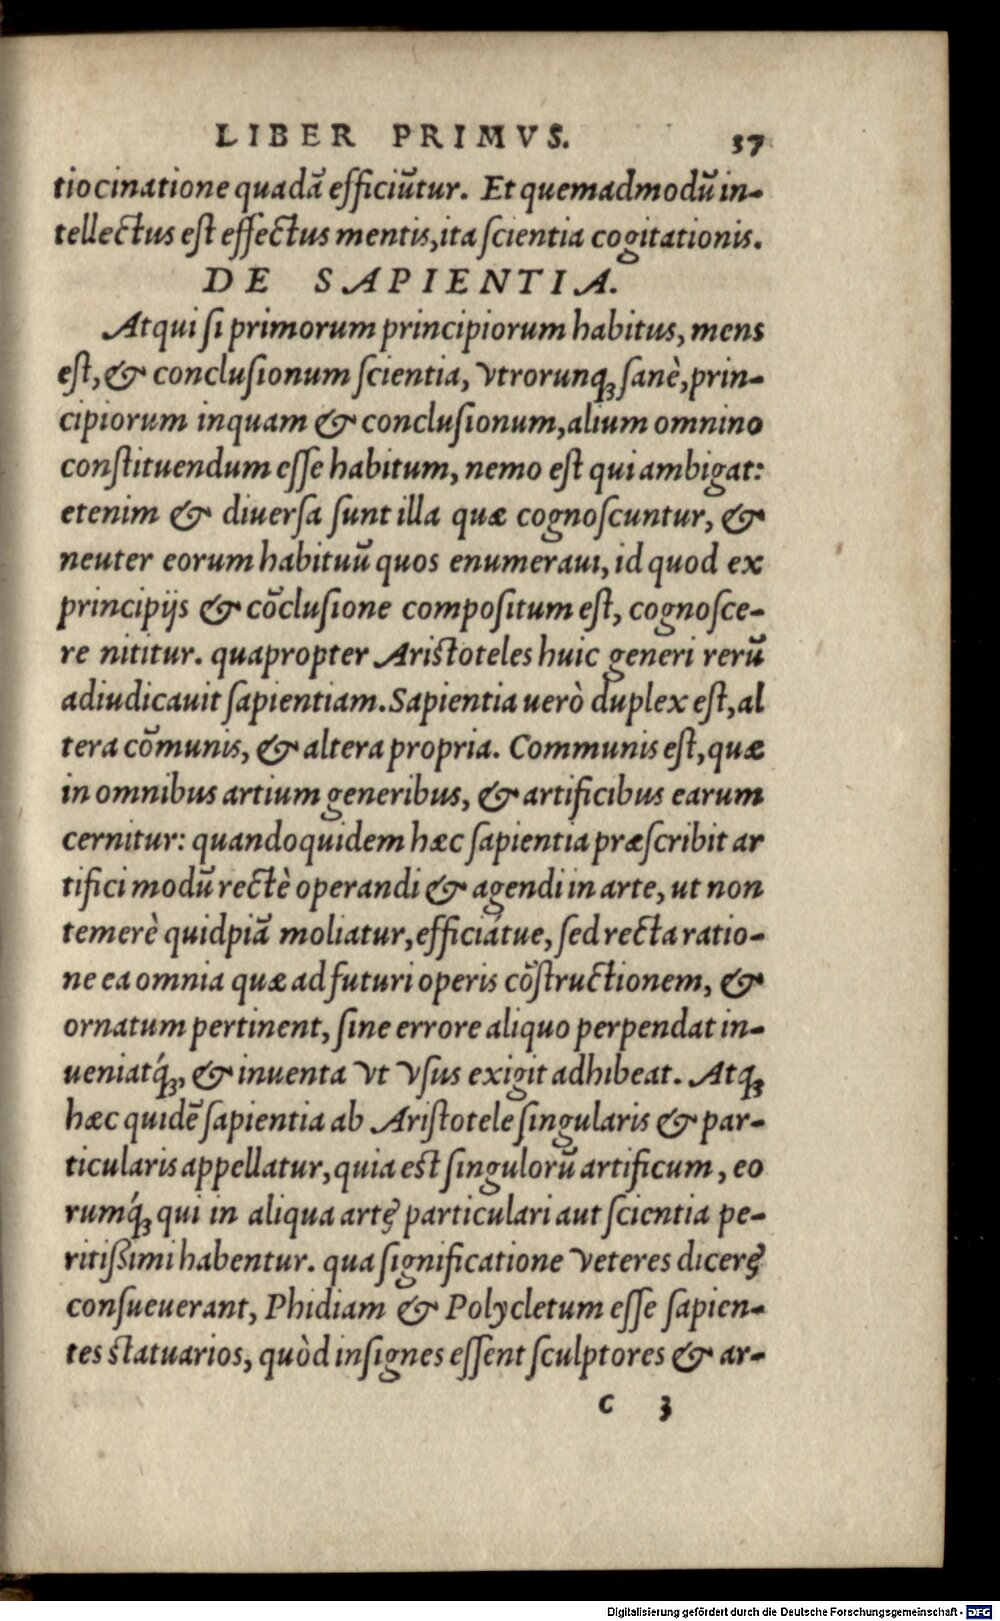 LIBER PRIMVS. 37
tiocinatione quadā efficiūtur. Et quemadmodū in-
tellectus est effectus mentis, ita scientia cogitationis.
DE SAPIENTIA.
Atqui si primorum principiorum habitus, mens
est, & conclusionum scientia, vtrorunq; sanè, prin-
cipiorum inquam & conclusionum, alium omnino
constituendum esse habitum, nemo est qui ambigat:
etenim & diuersa sunt illa quæ cognoscuntur, &
neuter eorum habituū quos enumeraui, id quod ex
principijs & cōclusione compositum est, cognosce-
re nititur. quapropter Aristoteles huic generi rerū
adiudicavit sapientiam. Sapientia uerò duplex est, al
tera cōmunis, & altera propria. Communis est, quæ
in omnibus artium generibus, & artificibus earum
cernitur: quandoquidem hæc sapientia præscribit ar
tifici modū rectè operandi & agendi in arte, ut non
temerè quidpiā moliatur, efficiátue, sed recta ratio-
ne ea omnia quæ ad futuri operis cōstructionem, &
ornatum pertinent, sine errore aliquo perpendat in-
ueniatq́;, & inuenta vt vsus exigit adhibeat. Atq;
hæc quidē sapientia ab Aristotele singularis & par-
ticularis appellatur, quia est singulorū artificum, eo
rumq́; qui in aliqua arte particulari aut scientia pe-
ritissimi habentur. qua significatione veteres dicere
consueuerant, Phidiam & Polycletum esse sapien-
tes statuarios, quòd insignes essent sculptores & ar-
c 3
Digitalisierung gefördert durch die Deutsche Forschungsgemeinschaft - DFG